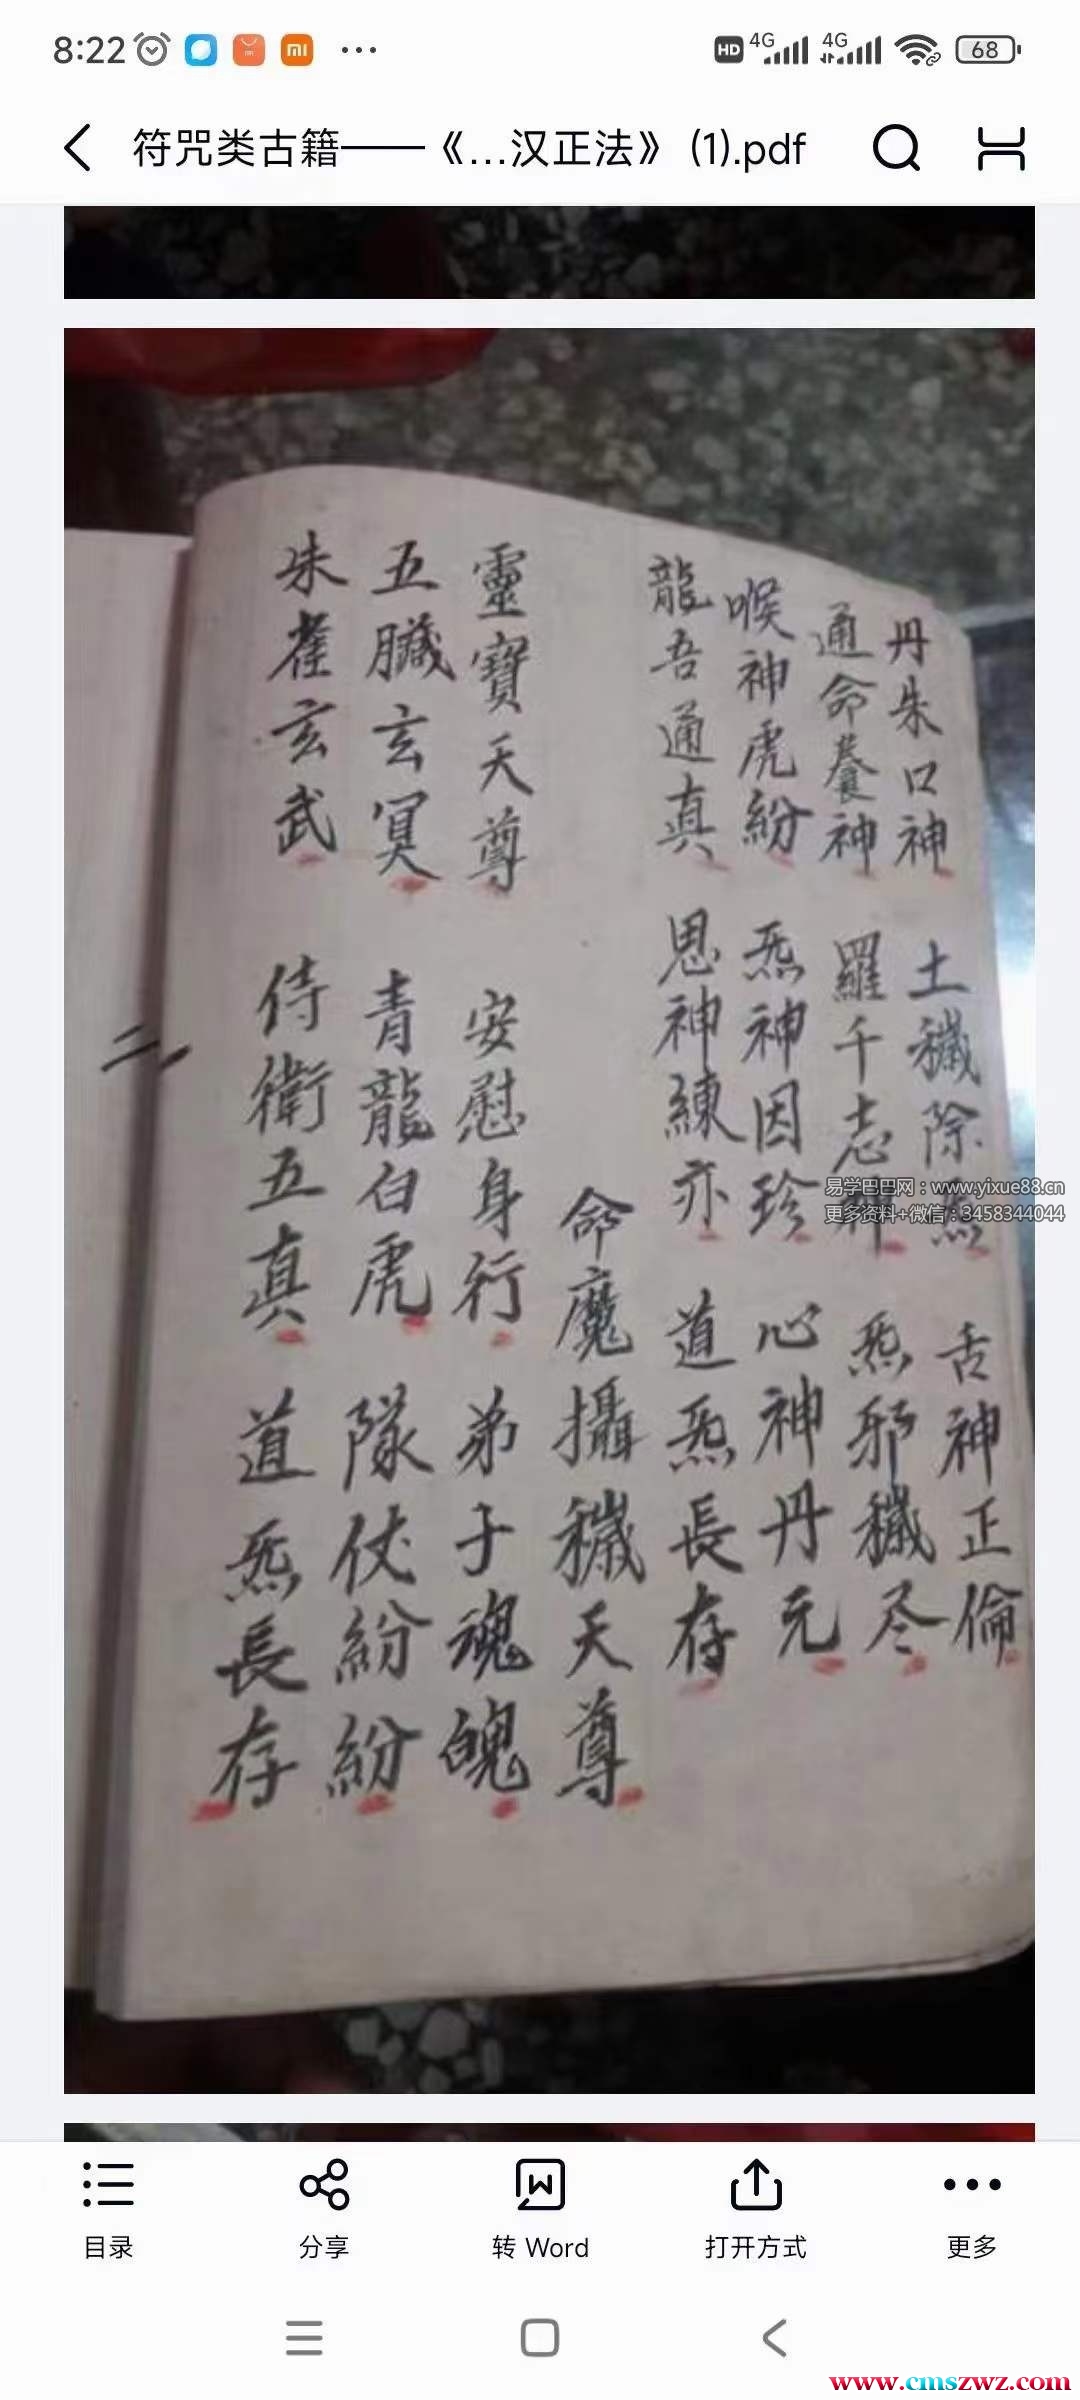 8:22
HD 4G 4G 68
符咒类古籍——《...汉正法》 (1).pdf
丹朱口神 土穢除炁 舌神正倫
通命養神 羅千志神 炁邪穢尽
喉神虎紛 炁神因珍 心神丹元
龍吾通真 思神練亦 道炁長存
命魔攝穢天尊
靈寶天尊 安慰身行 弟子魂魄
五臟玄冥 青龍白虎 隊仗紛紛
朱雀玄武 侍衛五真 道炁長存
二
易学巴巴网：www.yixue88.cn
更多资料+微信：3458344044
目录
分享
转 Word
打开方式
更多
www.cmszwz.com